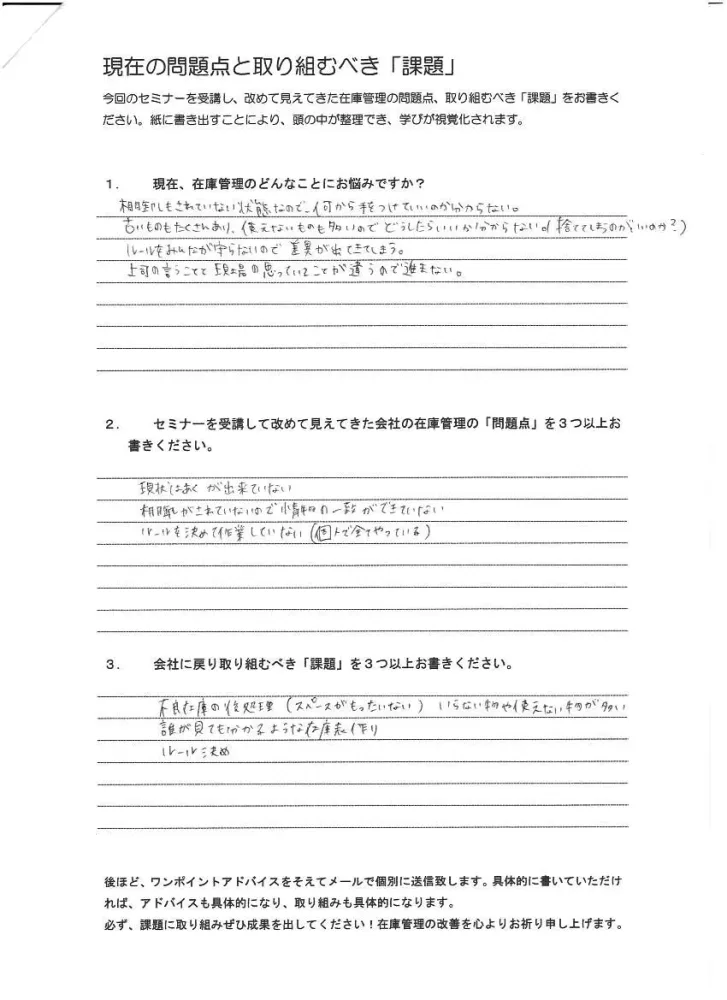 現在の問題点と取り組むべき「課題」
今回のセミナーを受講し、改めて見えてきた在庫管理の問題点、取り組むべき「課題」をお書きく
ださい。紙に書き出すことにより、頭の中が整理でき、学びが視覚化されます。
１．　現在、在庫管理のどんなことにお悩みですか？
棚卸しもされていない状態なので、何から手をつけていいのか分からない。
古いものもたくさんあり、使えないものも多いのでどうしたらいいか分からない。(捨ててしまうのがいいのか？)
ルールをみんなが守らないので差異が出てきてしまう。
上司の言うことと現場の思っていることが違うので進まない。
２．　セミナーを受講して改めて見えてきた会社の在庫管理の「問題点」を３つ以上お
書きください。
現状はあくが出来ていない
棚卸しがされていないので情報の一致ができていない
ルールを決めて作業していない(個人で全てやっている)
３．　会社に戻り取り組むべき「課題」を３つ以上お書きください。
不良在庫の後処理 (スペースがもったいない) いらない物や使えない物が多い
誰が見ても分かるような在庫表作り
ルール決め
後ほど、ワンポイントアドバイスをそえてメールで個別に送信致します。具体的に書いていただけ
れば、アドバイスも具体的になり、取り組みも具体的になります。
必ず、課題に取り組みぜひ成果を出してください！在庫管理の改善を心よりお祈り申し上げます。